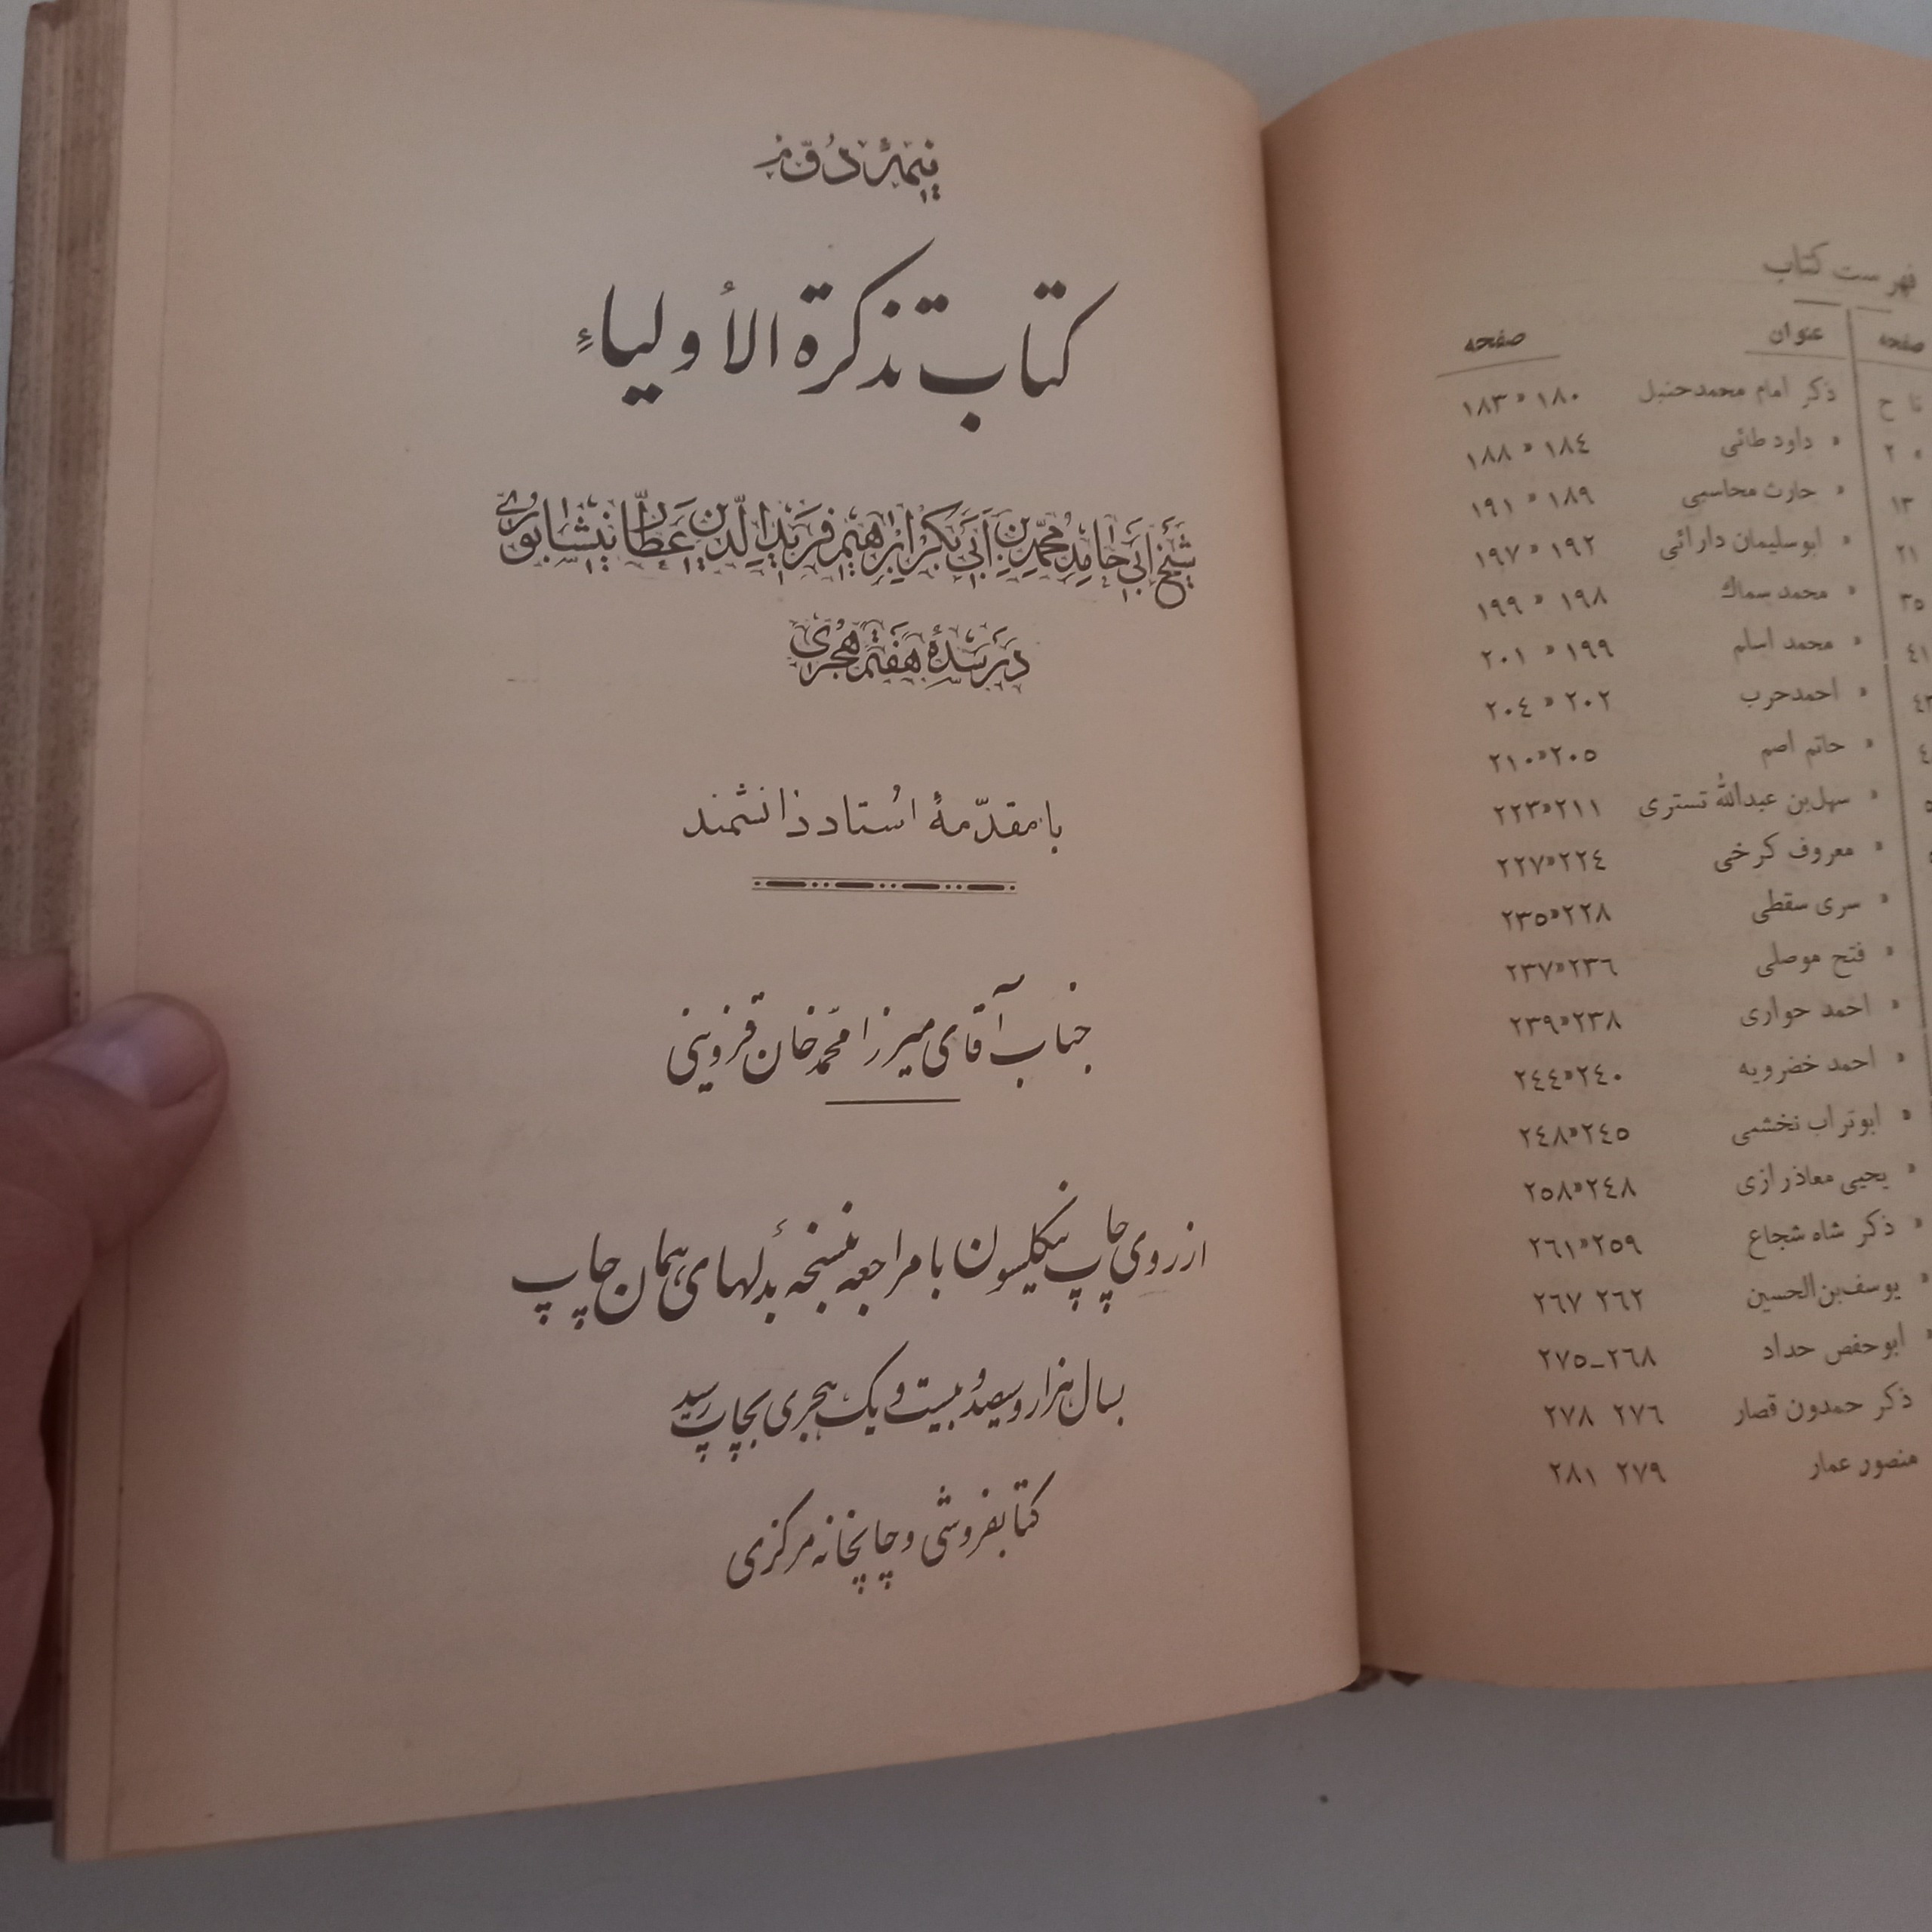 نیمهٔ دوّم
کتاب تذکرة الأولیاء
شیخ أبی حامد محمّد بن أبی بکر ابراهیم فرید الدّین عطّار نیشابوری
در سدهٔ هفتم هجری
با مقدّمهٔ اُستاد دانشمند
جناب آقای میرزا محمّد خان قزوینی
از روی چاپ نیکلسون با مراجعه بنسخه بدلهای همان چاپ
بسال هزار و سیصد و بیست و یک هجری بچاپ رسید
کتابفروشی و چاپخانه مرکزی
فهرست کتاب
صفحه عنوان صفحه
تا ح ذکر امام محمدحنبل ۱۸۰ « ۱۸۳
« ۲ « داود طائی ۱۸٤ « ۱۸۸
۱۳ « حارث محاسبی ۱۸۹ « ۱۹۱
۲۱ « ابوسلیمان دارائی ۱۹۲ « ۱۹۷
۳٥ « محمد سماك ۱۹۸ « ۱۹۹
٤۱ « محمد اسلم ۱۹۹ « ۲۰۱
« احمدحرب ۲۰۲ « ۲۰٤
« حاتم اصم ۲۰٥«۲۱۰
« سهل‌بن عبدالله تستری ۲۱۱«۲۲۳
« معروف کرخی ۲۲٤«۲۲۷
« سری سقطی ۲۲۸«۲۳٥
« فتح موصلی ۲۳٦«۲۳۷
« احمد حواری ۲۳۸«۲۳۹
« احمد خضرویه ۲٤۰«۲٤٤
« ابوتراب نخشبی ۲٤٥«۲٤۸
« یحیی معاذ رازی ۲٤۸«۲٥۸
« ذکر شاه شجاع ۲٥۹«۲٦۱
« یوسف‌بن‌الحسین ۲٦۲ ۲٦۷
« ابوحفص حداد ۲٦۸ــ۲۷٥
ذکر حمدون قصار ۲۷٦ ۲۷۸
منصور عمار ۲۷۹ ۲۸۱